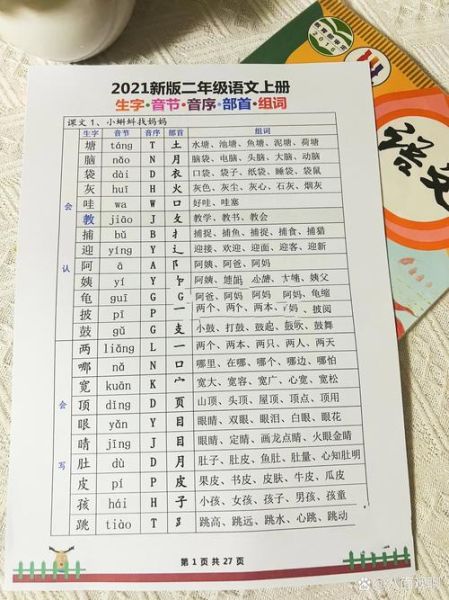 2021新版二年级语文上册
生字·音节·音序·部首·组词
课文 1、小蝌蚪找妈妈
生字 音节 音序 部首 组词
会认
塘 táng T 土 水塘、池塘、鱼塘、泥塘、荷塘
脑 nǎo N 月 脑袋、电脑、头脑、大脑、动脑
袋 dài D 衣 口袋、袋子、纸袋、睡袋、袋鼠
灰 huī H 火 灰色、灰尘、灰心、石灰、烟灰
哇 wa W 口 好哇、哇塞
教 jiāo J 攵 教学、教书、教会
捕 bǔ B 扌 捕捉、捕鱼、捕捉、捕食、捕猎
迎 yíng Y 辶 迎接、欢迎、迎面、迎客、迎新
阿 ā A 阝 阿姨、阿爸、阿妈
姨 yí Y 阿姨、姨父
龟 guī G 阿爸、阿妈 阿妈、龟缩
披 pī P 两个、两个、两本、披阅
鼓 gǔ G 支 小鼓、打鼓、鼓起、鼓吹、鼓舞
会写
两 liǎng L 一 两个、两本、两只、两人、两天
哪 nǎ N 口 哪里、在哪、哪个、哪边、哪怕
宽 kuān K 宀 宽大、宽容、宽广、心宽、宽松
顶 dǐng D 页 山顶、头顶、屋顶、顶点、顶用
眼 yǎn Y 目 眼睛、双眼、眼泪、白眼、眼花
睛 jīng J 目 眼睛、定睛、画龙点睛、火眼金睛
肚 dù D 月 肚子、肚皮、鱼肚、肚量、心知肚明
皮 pí P 皮 果皮、书皮、皮肤、牛皮、瓜皮
孩 hái H 子 小孩、女孩、孩子、男孩、孩童
跳 tiào T 跳高、跳远、跳水、心跳、跳动
第 1 页 共 27 页
语文